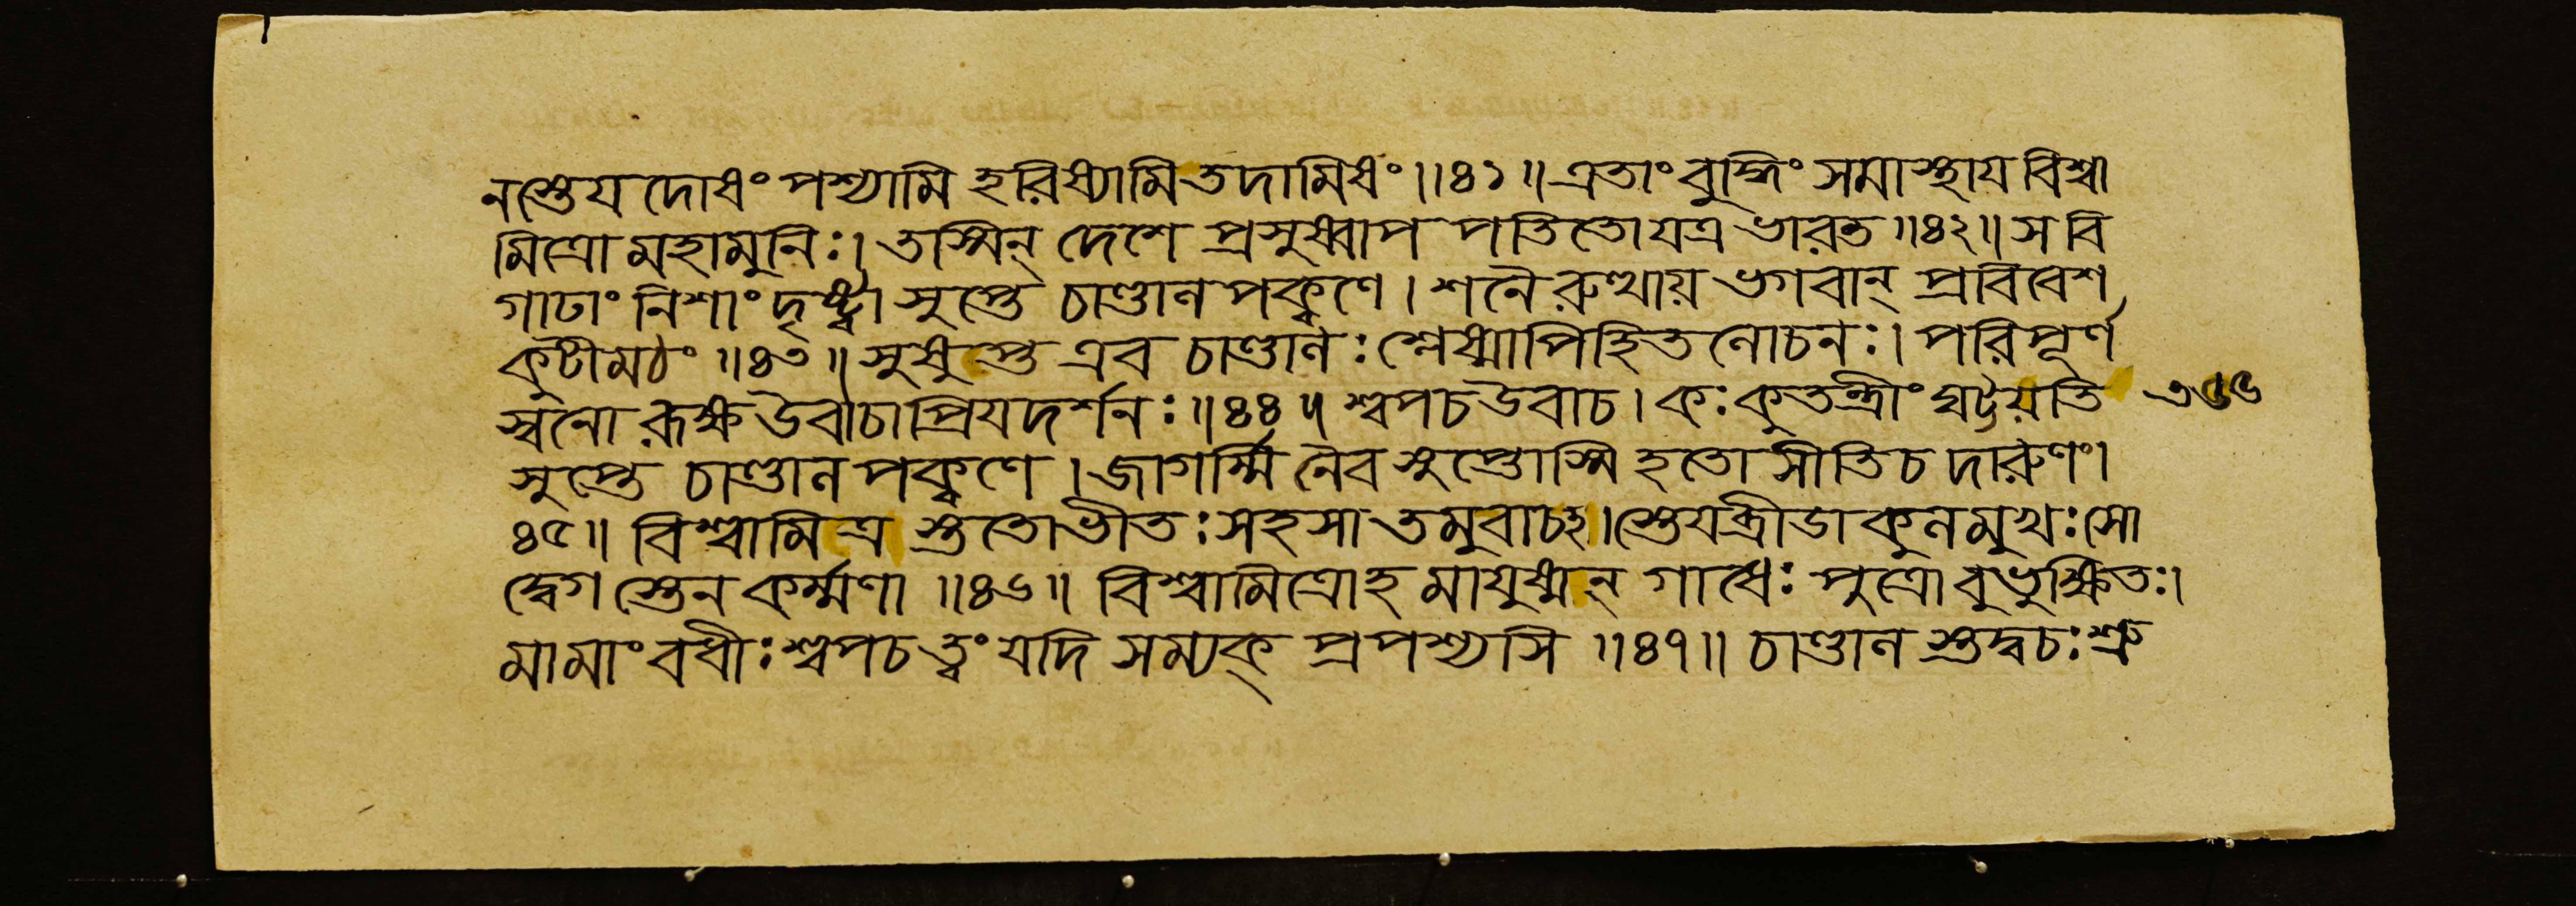 নস্তেয দোষং পশ্যামি হরিষ্যামি তদামিষং ॥৪১॥ এতাং বুদ্ধিং সমাস্থায বিশ্বা
মিত্রো মহামুনিঃ। তস্মিন্ দেশে প্রসুষ্বাপ পতিতো যত্র ভারত ॥৪২॥ স বি
গাঢাং নিশাং দৃষ্ট্বা সুপ্তে চাণ্ডাল পক্বণে। শনৈ রুত্থায় ভগবান্ প্রবিবেশ
কুটীমঠং ॥৪৩॥ সুষুপ্ত এব চাণ্ডালঃ শ্লেষ্মাপিহিত লোচনঃ। পরিপূর্ণ
স্বনো রূক্ষ উবাচাপ্রিযদর্শনঃ ॥৪৪॥ শ্বপচ উবাচ। কঃ কুতন্ত্রীং ঘট্টয়তি
সুপ্তে চাণ্ডাল পক্বণে। জাগর্ম্মি নৈব সুপ্তোস্মি হতো সীতি চ দারুণং।
৪৫॥ বিশ্বামিত্র স্তুতো ভীতঃ সহসা তমুবাচহ। স্তেযব্রীডাকুলমুখঃ সো
দ্বেগ স্তেন কর্ম্মণা ॥৪৬॥ বিশ্বামিত্রোহ মাযুষ্মন্ গাধেঃ পুত্রো বুভুক্ষিতঃ।
মামাং বধীঃ শ্বপচ ত্বং যদি সম্যক্ প্রপশ্যসি ॥৪৭॥ চাণ্ডাল স্তুদ্বচঃ শ্রু